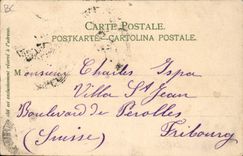 CARTE POSTALE.
POSTKARTE - CARTOLINA POSTALE.
Monsieur Charles
Villa St Jean
Boulevard de Pérolles
(Suisse) Fribourg
côté est exclusivement réservé à l'adresse.